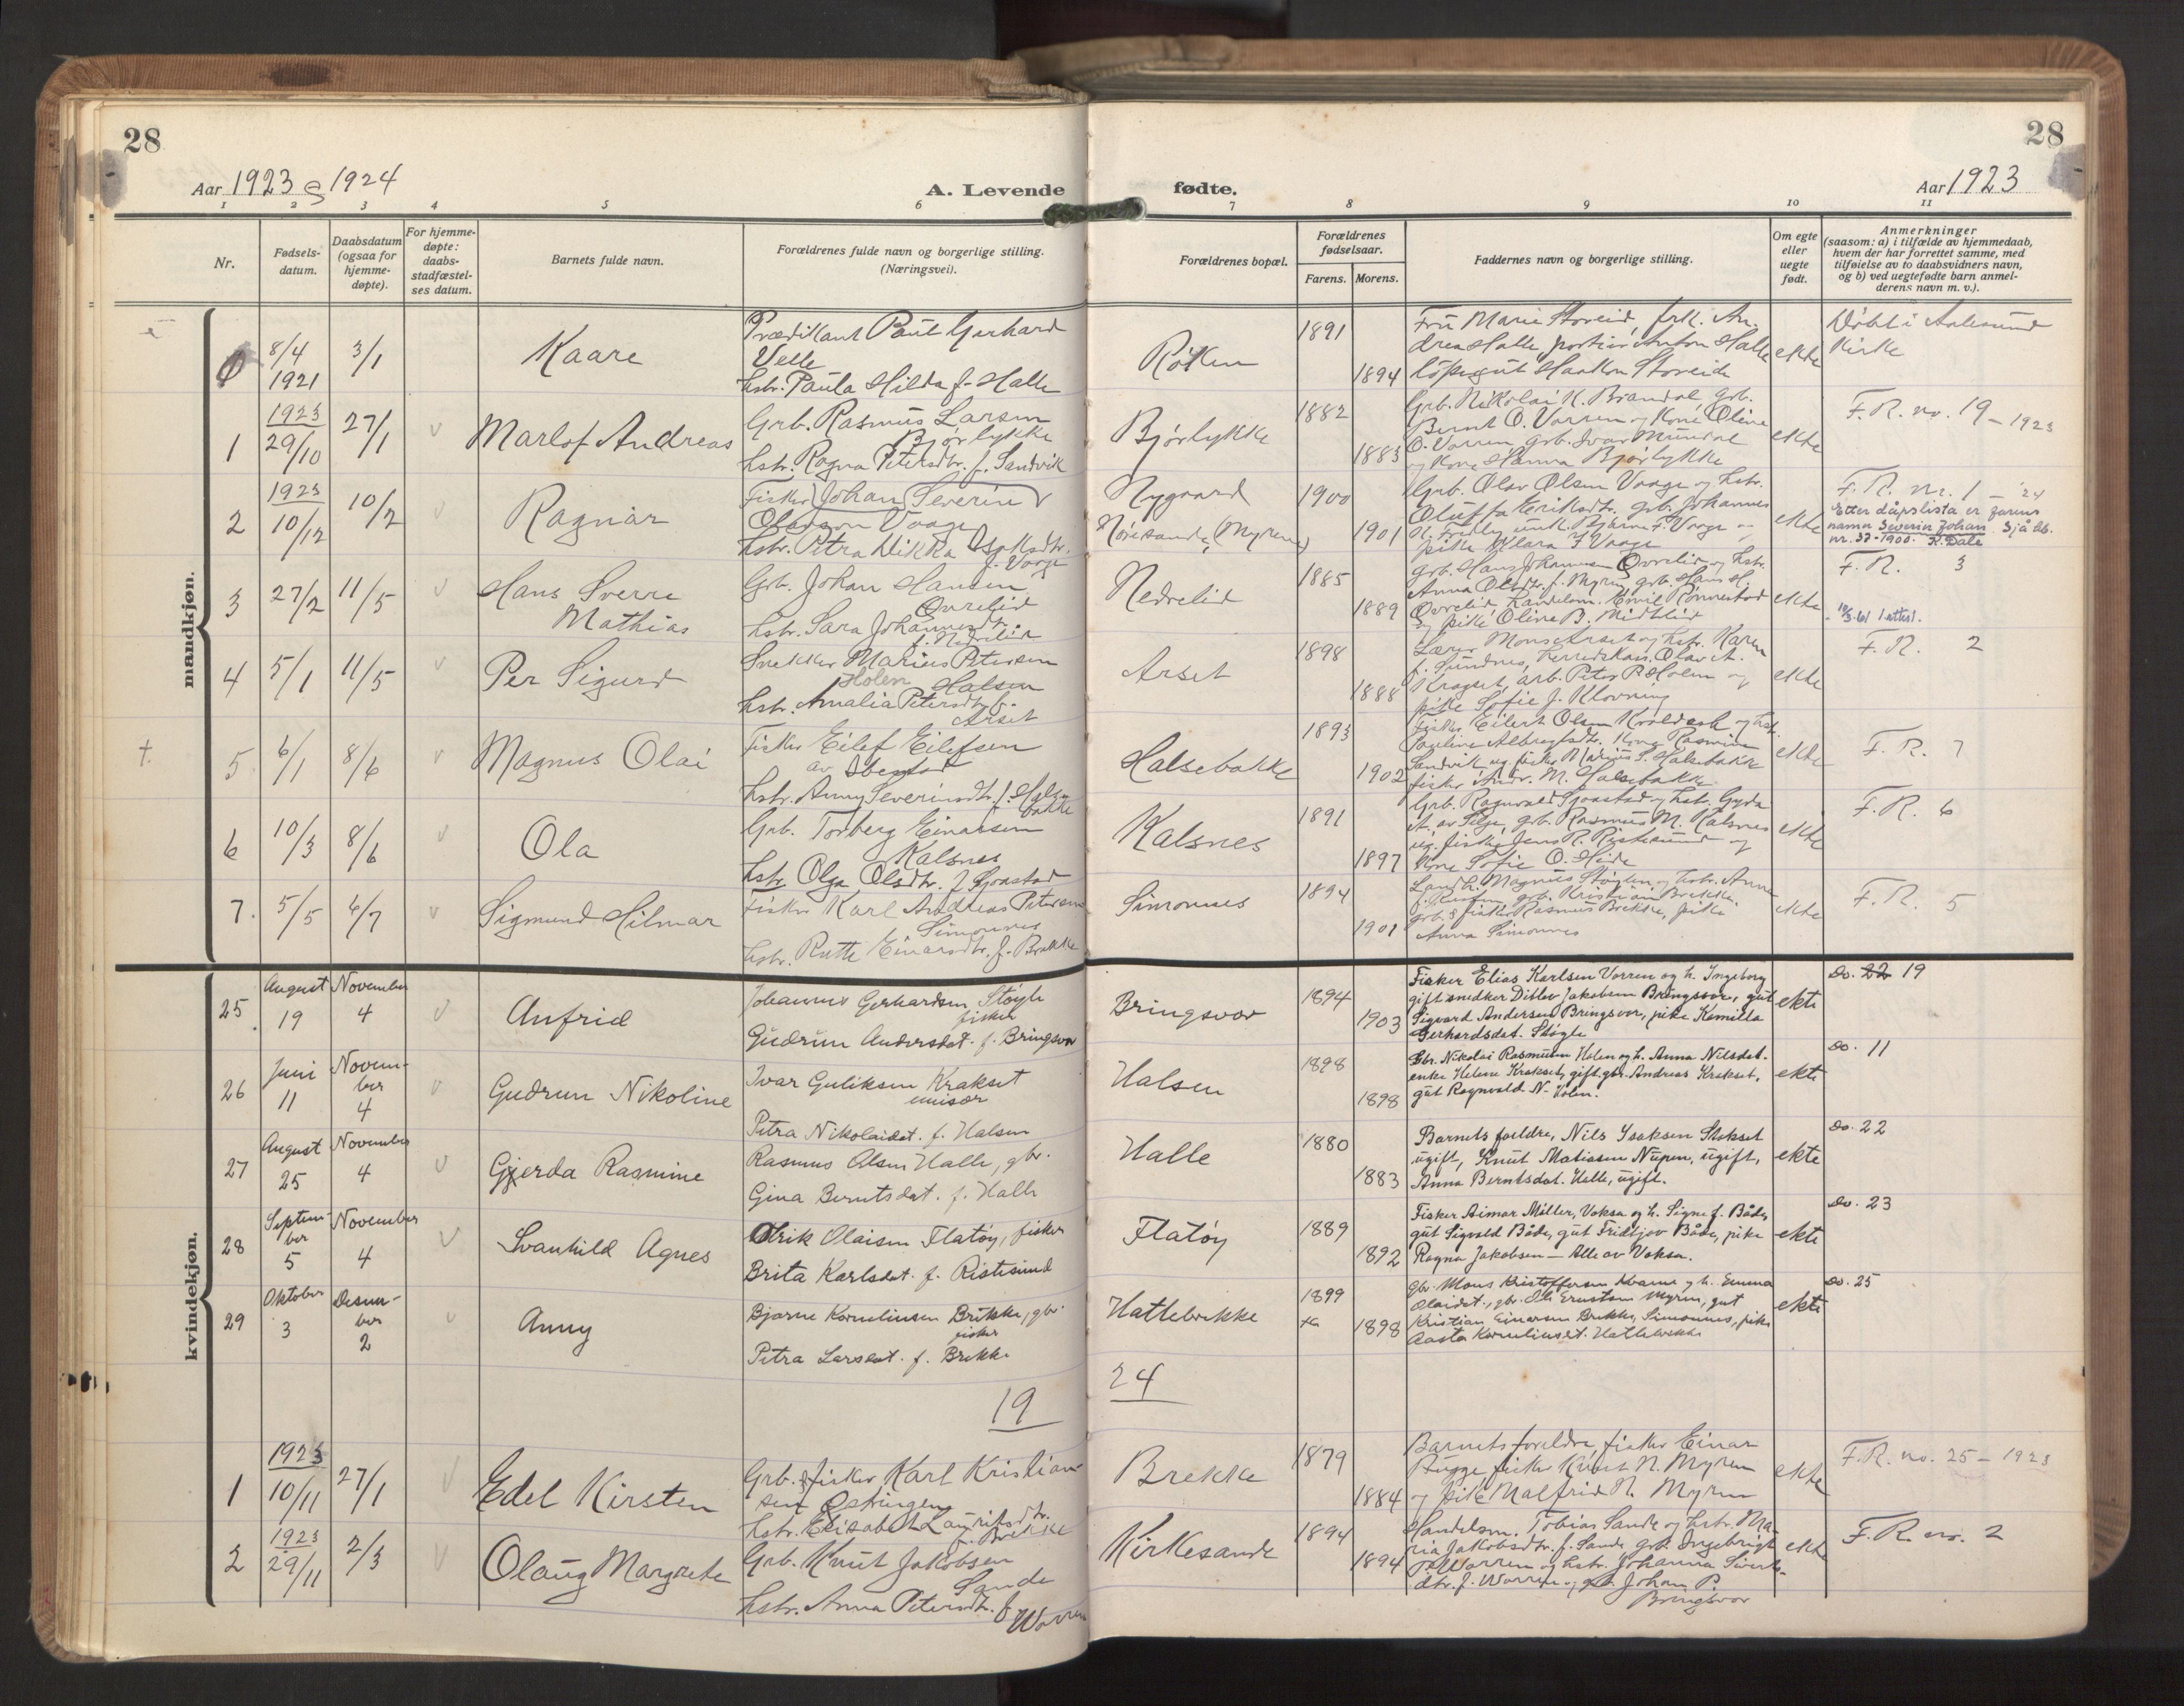 28
28
Aar 1923 og 1924
A. Levende
fødte.
Aar 1923
1 2 3 4 5 6 7 8 9 10 11
Nr.
Fødsels-
datum.
Daabsdatum
(ogsaa for
hjemme-
døpte).
For hjemme-
døpte:
daabs-
stadfæstel-
ses datum.
Barnets fulde navn.
Forældrenes fulde navn og borgerlige stilling.
(Næringsvei).
Forældrenes bopæl.
Forældrenes
fødselsaar.
Farens. Morens.
Faddernes navn og borgerlige stilling.
Om egte
eller
uegte
født.
Anmerkninger
(saasom: a) i tilfælde av hjemmedaab,
hvem der har forrettet samme, med
tilføielse av to daabsvidners navn,
og b) ved uegtefødte barn anmel-
derens navn m. v.).
mandkjøn.
8/4
1921
3/1
Kaare
Prædikant Paul Gerhard
Velle
hstr. Paula Hilda f. Halle
Røtken
1891
1894
Fru Marie Storeid, frk. An-
drea Halle portier Anton Halle
løpegut Haakon Storeide
ekte
Døbt i Aalesund
Kirke
1
1923
29/10
27/1
Marlof Andreas
Grb. Rasmus Larsen
Bjørlykke
hstr. Ragna Petersdtr. f. Sandvik
Bjørlykke
1882
1883
Grb. Nikolai K. Brandal, grb.
Bernt O. Vorren og kone Oline
O. Vorren, grb. Ivar Mundal
og kone Hanna Bjørlykke
ekte
F. R. no. 19 - 1923
2
1923
10/12
10/2
Ragnar
Fisker Johan Severin
Oladson Vaage
hstr. Petra Dikka Isaksdtr.
f. Vaage
Nygaard
Nøresande (Myrene)
1900
1901
Grb. Olav Olsen Vaage og hstr.
Oluffa Eriksdtr. grb. Johannes
pike Klara F. Vaage
ekte
F. R. nr. 1 - '24
Etter dåpslista er farens
namn Severin Johan. Sjå kb.
nr. 37-1900. K. Dale
3
27/2
11/5
Hans Sverre
Mathias
Grb. Johan Hansen
Øvrelid
hstr. Sara Johannesdtr.
f. Nedrelid
Nedrelid
1885
1889
Grb. Hans Johannesen Øvrelid og hstr.
Anna Olsdtr. f. Myren, grb. Hans H.
Øvrelid, handelsm. Emil Rønnestad
og pike Oline B. Midtlid
ekte
F. R. 3
10/3.61 1 attest.
4
5/1
11/5
Per Sigurd
Snekker Marius Petersen
Holen Halsen
hstr. Amalia Petersdtr. f.
Arset
Arset
1898
1888
Lærer Mons Arset og hstr. Karen
f. Sundnes, herredskass. Olav A.
Kragset, arb. Peter P. Holen og
pike Sofie J. Klovning
ekte
F. R. 2
†.
5
6/1
8/6
Magnus Olai
Fisker Eilef Eilefsen
av Ibestad
hstr. Anny Severinsdtr. f. Halse-
bakke
Halsebakke
1893
1902
Fisker Eilert Olsen Kvaldesh og hstr.
Pauline Albregtsdtr. kone Rasmine
Sandvik ug. fisker Marius S. Halsebakke
fisker Andr. M. Halsebakke
ekte
F. R. 7
6
10/3
8/6
Ola
Grb. Torberg Einarsen
Kalsnes
hstr. Olga Olsdtr. f. Sjoastad
Kalsnes
1891
1897
Grb. Ragnvald Sjoastad og hstr. Gyda
A. av Silje, grb. Rasmus M. Kalsnes
ug. fisker Jens R. Ristesund og
kone Sofie O. Heide
ekte
F. R. 6
7.
5/5
6/7
Sigmund Hilmar
Fisker Karl Andreas Petersen
Simonnes
hstr. Ruth Einarsdtr. f. Brekke
Simonnes
1894
1901
Landh. Magnus Støylen og hstr. Anne
grb. Kristian Brekke,
grb. & fisker Rasmus Brekke, pike
Anna Simonnes
ekte
F. R. 5
kvindekjøn.
25
August
19
November
4
Anfrid
Johannes Gerhardsen Støyle
fisker
Gudrun Andersdat. f. Bringsvor
Bringsvor
1894
1903
Fisker Elias Karlsen Vorren og h. Ingeborg
gift snedker Ditlev Jakobsen Bringsvor, gut
Sigvard Andersen Bringsvor, pike Kamilla
Gerhardsdat. Støyle
ekte
Do. 22 19
26
Juni
11
Novem-
ber
4
Gudrun Nikoline
Ivar Guliksen Krakset
emisær
Petra Nikolaidat. f. Halsen
Halsen
1898
1898
Gbr. Nikolai Rasmusen Holen og h. Anna Nilsdat.
enke Helene Krakset, gift gbr. Andreas Krakset,
gut Ragnvald N. Holen.
ekte
Do. 11
27
August
25
November
4
Gjerda Rasmine
Rasmus Olsen Halle, gbr.
Gina Berntsdat. f. Halle
Halle
1880
1883
Barnets foreldre, Nils Isaksen Stokset
ugift, Knut Matiasen Nupen, ugift,
Anna Berntsdat. Halle, ugift.
ekte
Do. 22
28
Septem-
ber
5
November
4
Svanhild Agnes
Olrik Olaisen Flatøy, fisker
Brita Karlsdat. f. Ristesund
Flatøy
1889
1892
Fisker Aimar Müller, Voksa og h. Signe f. Både,
gut Sigvald Både, gut Fridtjov Både, pike
Ragna Jakobsen — Alle av Voksa.
ekte
Do. 23
29
Oktober
3
Desem-
ber
2
Anny
Bjarne Korneliusen Brekke, gbr.
fisker
Petra Larsdat. f. Brekke
Hattebrekke
1899
1898
Gbr. Mons Kristoffersen Kvame og h. Emma
Olaidat., gbr. Ole Ernstsen Myren, gut
Kristian Einarsen Brekke, Simonnes, pike
Aasta Korneliusdt. Hattebrekke
ekte
Do. 25
19
24
1
1923
10/11
27/1
Edel Kirsten
Grb. & fisker Karl Kristian-
sen Østringen
hstr. Elisabet Lauritsdtr.
f. Brekke
Brekke
1879
1884
Barnets foreldre, fisker Einar
Rugge, fisker Knut N. Myren
og pike Malfrid N. Myren
ekte
F. R. no. 25 - 1923
2
1923
29/11
2/3
Olaug Margrete
Grb. Knut Jakobsen
Sande
hstr. Anna Petersdtr. f.
Worren
Kirkesande
1894
1894
Handelsm. Tobias Sande og hstr. Ma-
ria Jakobsdtr. f. Sande, grb. Ingebrigt
P. Worren og hstr. Johanna Siverts-
dtr. f. Worren og grb. Johan P.
Bringsvor
ekte
F. R. no. 2